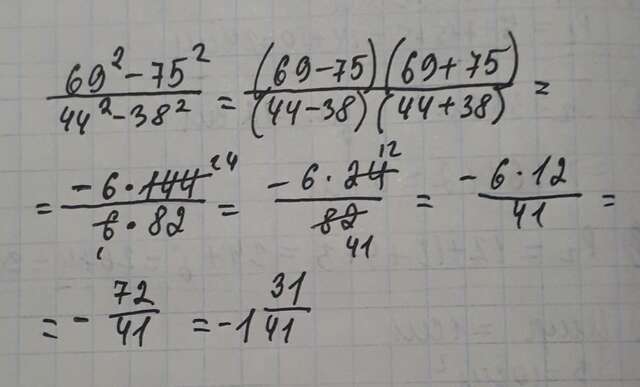 69² - 75² / 44² - 38² = (69 - 75)(69 + 75) / (44 - 38)(44 + 38) =
= -6 · 144 24 / 6 1 · 82 = -6 · 24 12 / 82 41 = -6 · 12 / 41 =
= - 72 / 41 = -1 31 / 41